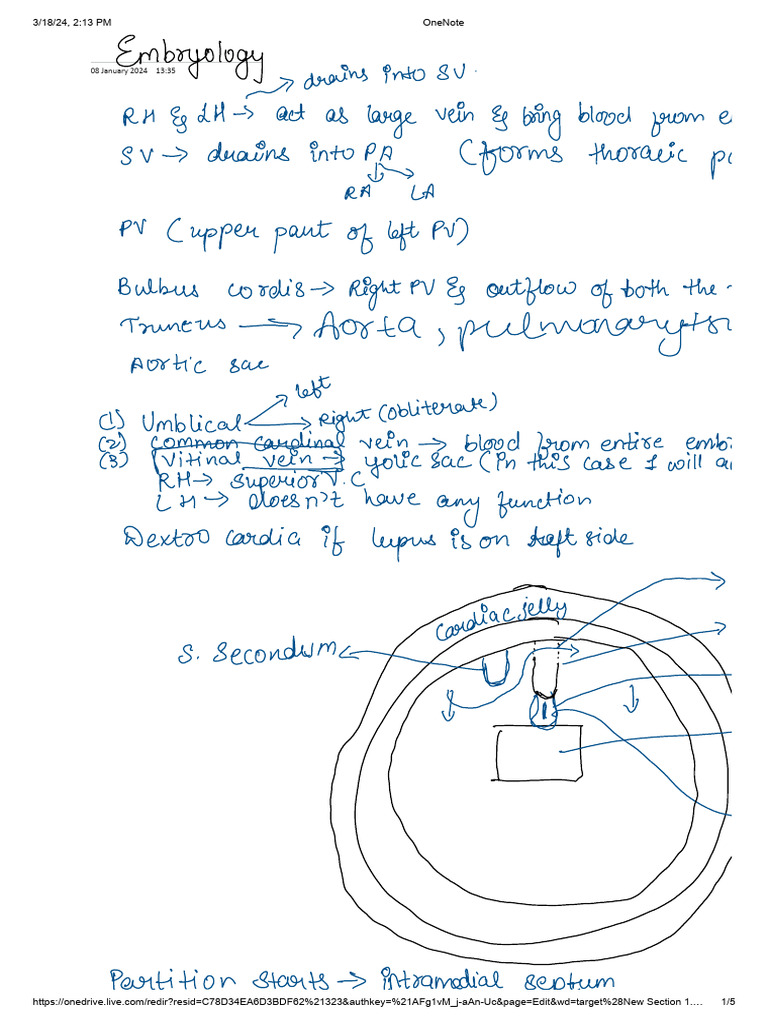 3/18/24, 2:13 PM OneNote
Embryology
08 January 2024 13:35
drains into SV.
RH & LH → act as large vein & bring blood from e
SV → drains into PA (forms thoracic p
RA LA
PV (upper part of left PV)
Bulbus cordis → Right PV & outflow of both the
Truncus → Aorta, pulmonary
Aortic sac
left
(1) Umblical → Right (obliterate)
(2) common cardinal vein → blood from entire emb
(3) Vitinal vein → yolic sac (in this case I will a
RH → superior V.C
LH → doesn't have any function
Dextro cardia if lupus is on left side
cardiac jelly
S. Secondum
Partition starts → intramedial septum
https://onedrive.live.com/redir?resid=C78D34EA6D3BDF62%21323&authkey=%21AFg1vM_j-aAn-Uc&page=Edit&wd=target%28New Section 1.… 1/5